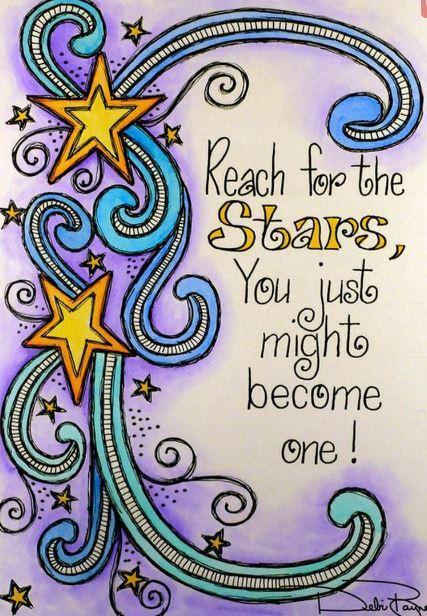 Reach for the
Stars,
You just
might
become
one!
Debi Payne